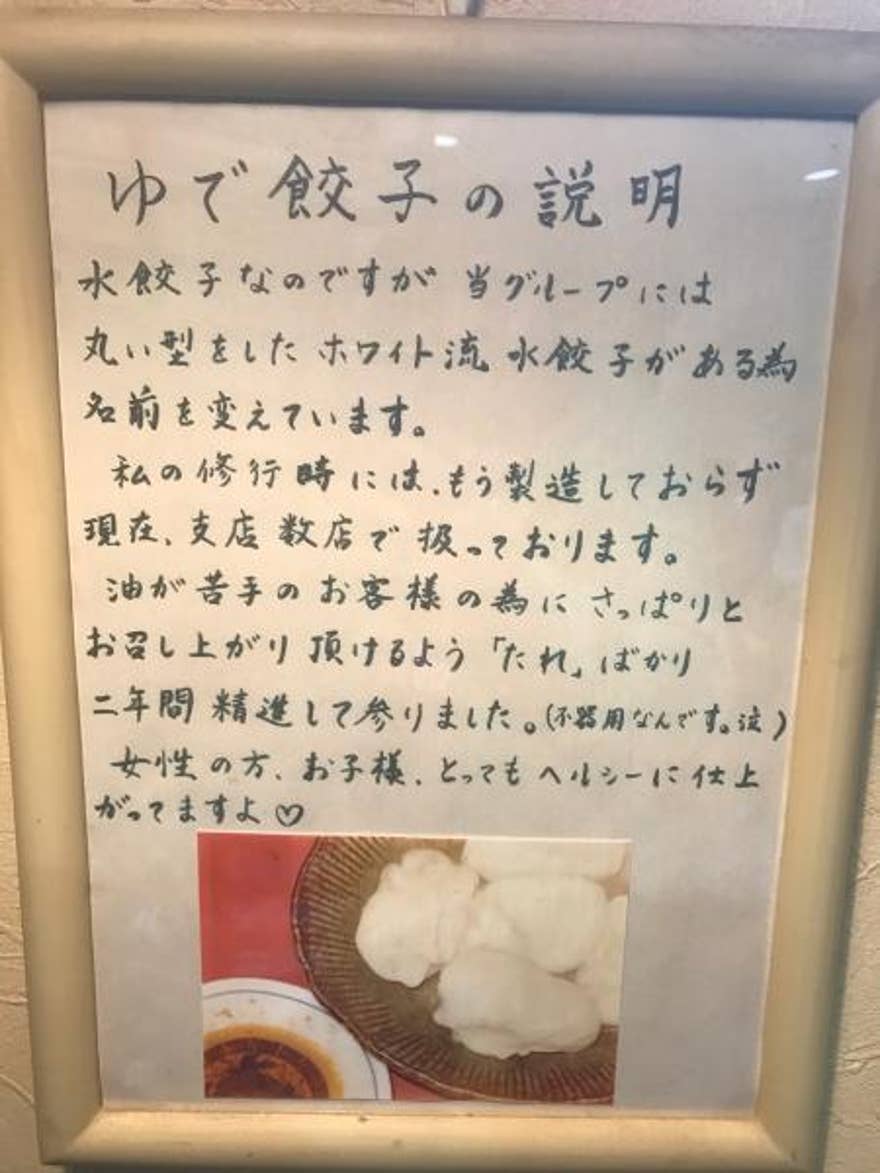 ゆで餃子の説明
水餃子なのですが 当グループには
丸い型をした ホワイト流 水餃子がある為
名前を変えています。
私の修行時には、もう製造しておらず
現在、支店数店で扱っております。
油が苦手のお客様の為に さっぱりと
お召し上がり頂けるよう「たれ」ばかり
二年間 精進して参りました。(不器用なんです。泣)
女性の方、お子様、とってもヘルシーに仕上
がってますよ♡